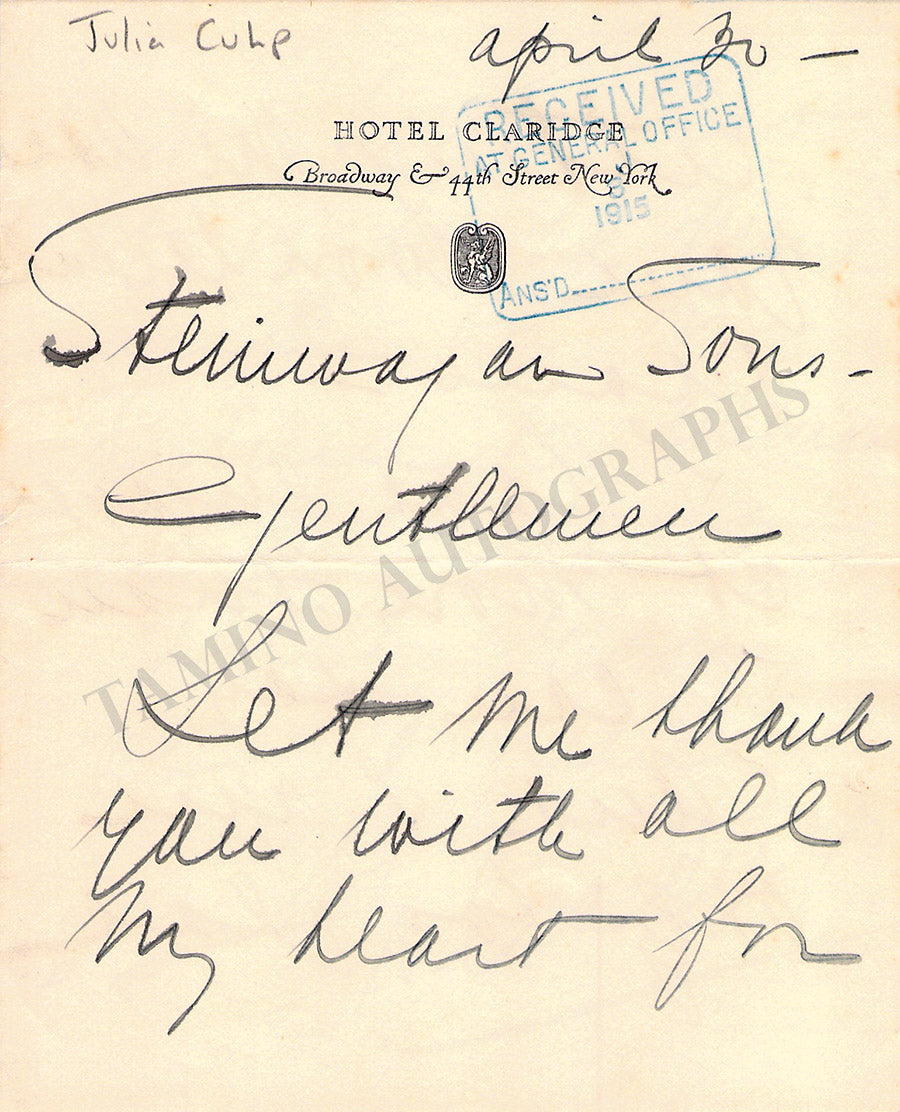 Julia Culp
april 30 –
RECEIVED
AT GENERAL OFFICE
1915
ANS'D
HOTEL CLARIDGE
Broadway & 44th Street New York
Steinway an Sons -
Gentlemen
Let me thank
you with all
my heart for
TAMINO AUTOGRAPHS